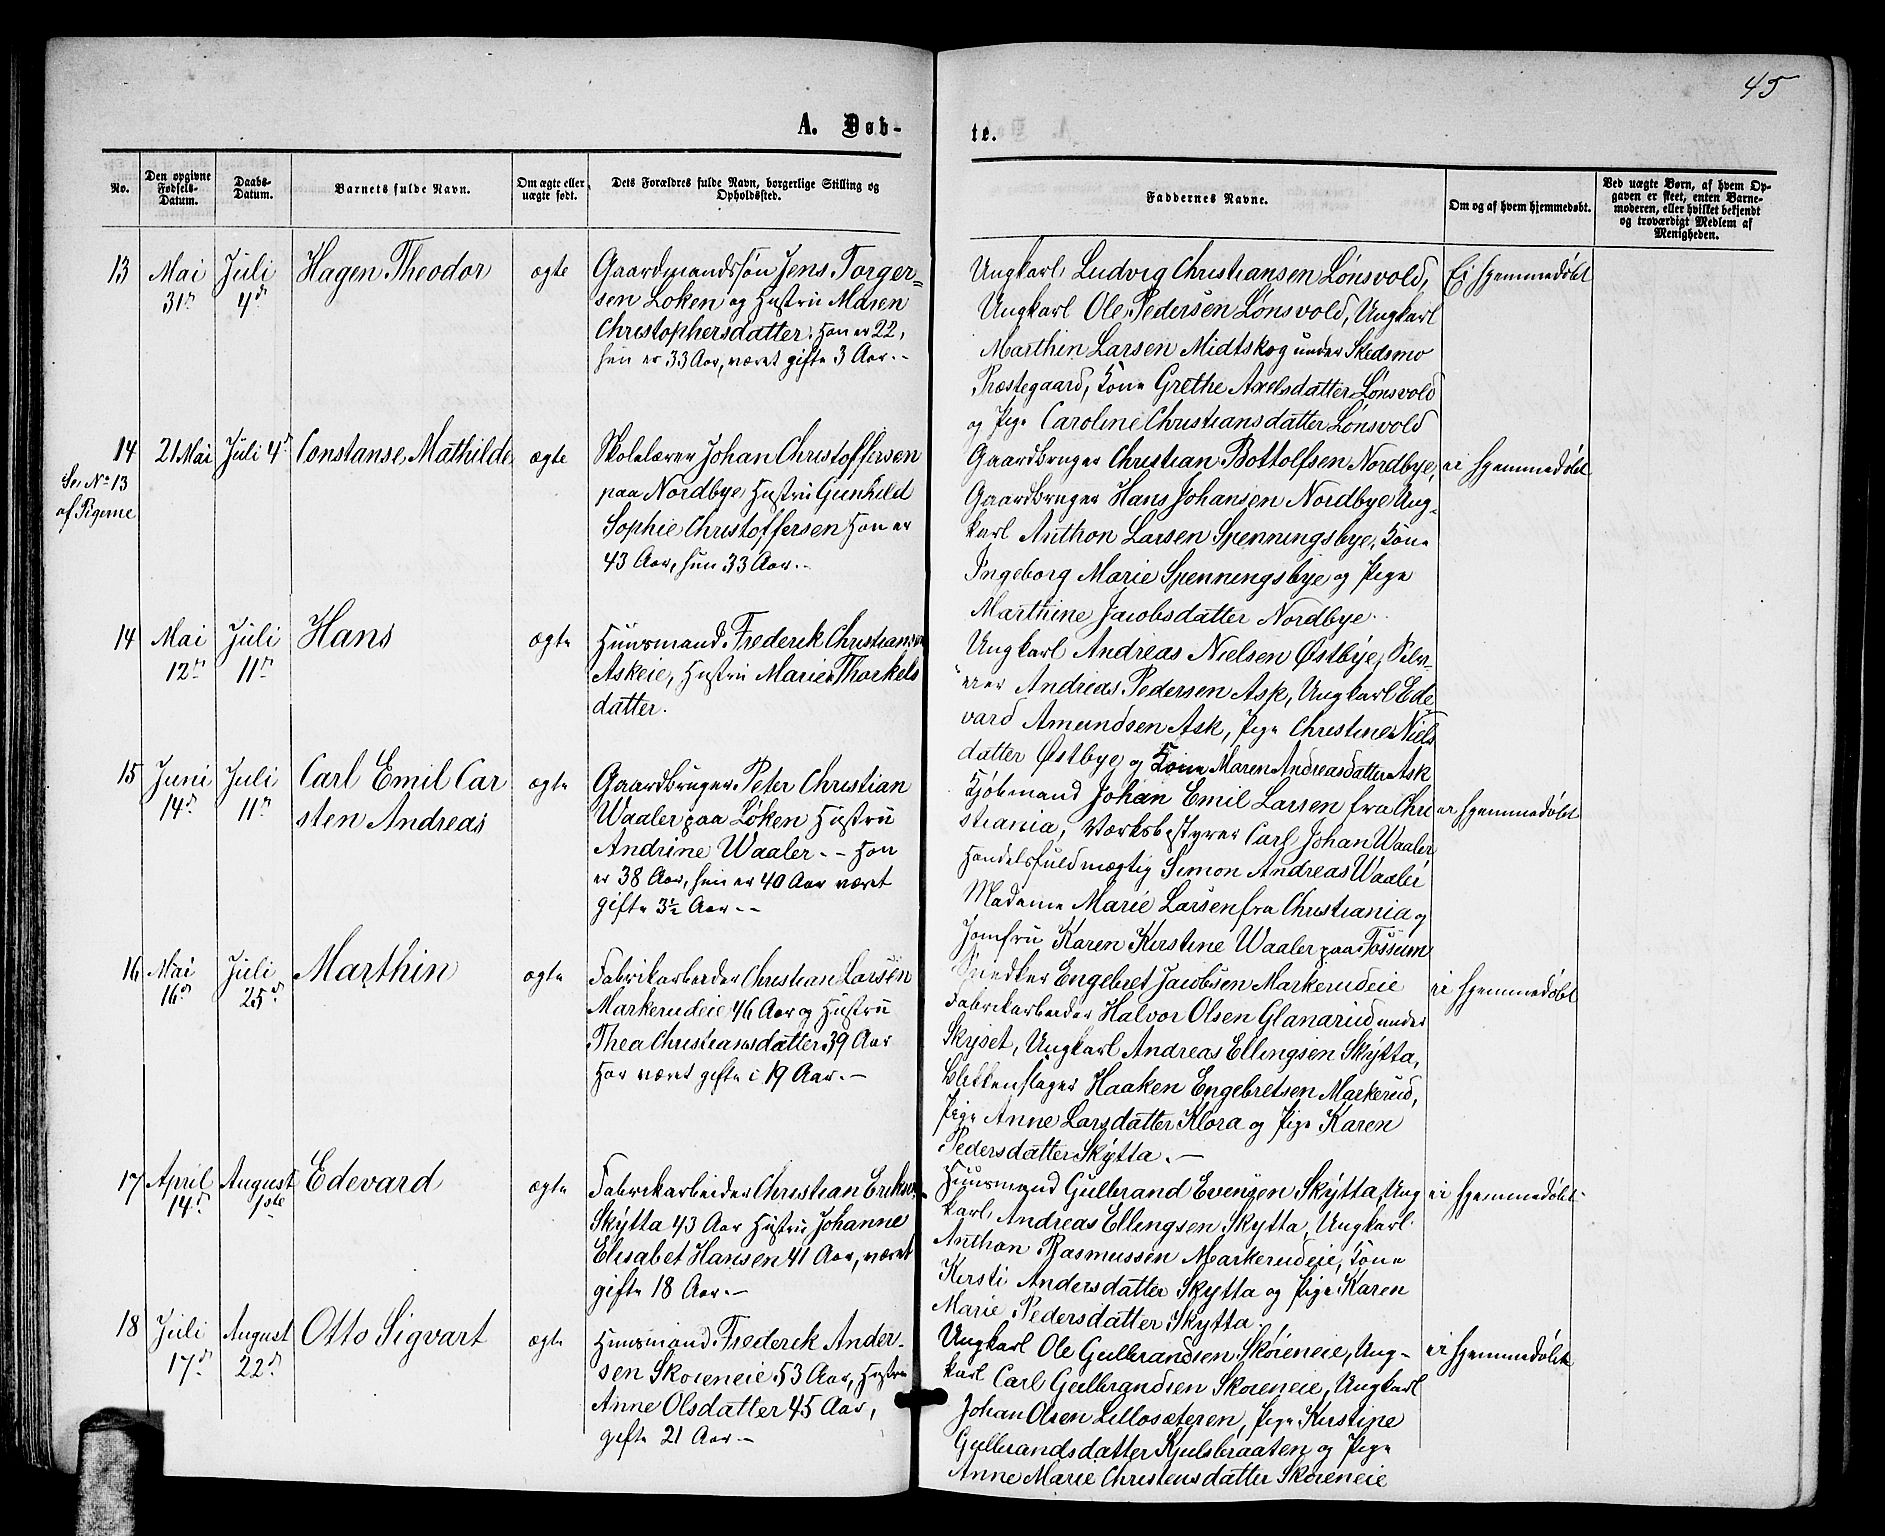 45
A. Døb-
te.
No.
Den opgivne Fødsels-Datum.
Daabs-Datum.
Barnets fulde Navn.
Om ægte eller uægte født.
Dets Forældres fulde Navn, borgerlige Stilling og Opholdssted.
Faddernes Navne.
Om og af hvem hjemmedøbt.
Ved uægte Børn, af hvem Op-
gaven er skeet, enten Barne-
moderen, eller hvilket bekjendt
og troværdigt Medlem af
Menigheden.
13
Mai 31te
Juli 4de
Hagen Theodor
ægte
Gaardmandssøn Jens Torger-
sen Loken og Hustru Maren
Christophersdatter. Han er 22,
hun er 33 Aar, været gifte 3 Aar.-
Ungkarl Ludvig Christiansen Lønsvold,
Ungkarl Ole Pedersen Lønsvold, Ungkarl
Marthin Larsen Midtskog under Skedsmo
Præstegaard, Kone Grethe Axelsdatter Lønsvold
og Pige Caroline Christiansdatter Lønsvold
Ei hjemmedøbt
14
Se No 13
af Pigerne
21 Mai
Juli 4de
Constanse Mathilde
ægte
Skolelærer Johan Christoffersen
paa Nordbye Hustru Gunhild
Sophie Christoffersen Han er
43 Aar, hun 33 Aar.-
Gaardbruger Christian Bottolfsen Nordbye,
Gaardbruger Hans Johansen Nordbye Ung-
karl Anthon Larsen Spenningsbye, Kone
Ingeborg Marie Spenningsbye og Pige
Marthine Jacobsdatter Nordbye.
ei hjemmedøbt
14
Mai 12te
Juli 11te
Hans
ægte
Huusmand Frederik Christiansen
Askeie, Hustru Marie Thorkels
datter.
Ungkarl Andreas Nielsen Østbye,
Andreas Pedersen Ask, Ungkarl Ede
vard Amundsen Ask, Pige Christine Niels
datter Østbye og Kone Maren Andreasdatter Ask
15
Juni 14de
Juli 11te
Carl Emil Car
sten Andreas
ægte
Gaardbruger Peter Christian
Waaler paa Løken Hustru
Andrine Waaler.- Han
er 38 Aar, hun er 40 Aar været
gifte 3½ Aar.-
Kjøbmand Johan Emil Larsen fra Chri
stiania, Værksbestyrer Carl Johan Waaler
Handelsfuldmægtig Simon Andreas Waaler
Madame Marie Larsen fra Christiania og
Jomfru Karen Kirstine Waaler paa Fossum
ei hjemmedøbt
16
Mai 16de
Juli 25de
Marthin
ægte
Fabrikarbeider Christian Larsen
Markerudeie 46 Aar og Hustru
Thea Christiansdatter 39 Aar
Har været gifte i 19 Aar.-
Snedker Engebret Jacobsen Markerudeie
Fabrikarbeider Halvor Olsen Glanarud under
Skjset, Ungkarl Andreas Ellingsen Skÿtta,
Blikkenslager Haaken Engebretsen Markerud,
Pige Anne Larsdatter Klora og Pige Karen
Pedersdatter Skÿtta.-
ei hjemmedøbt
17
April 14de
August 1ste
Edevard
ægte
Fabrikarbeider Christian Eriksen
Skÿtta 43 Aar Hustru Johanne
Elisabet Hansen 41 Aar, været
gifte 18 Aar.-
Huusmand Gulbrand Evensen Skÿtta, Ung
karl Andreas Ellingsen Skytta, Ungkarl
Anthon Rasmussen Markerudeie, Kone
Kirsti Andersdatter Skytta og Pige Karen
Marie Pedersdatter Skytta.
ei hjemmedøbt
18
Juli 17de
August 22de
Otto Sigvart
ægte
Huusmand Frederik Ander-
sen Skoieneie 53 Aar, Hustru
Anne Olsdatter 45 Aar,
gifte 21 Aar.-
Ungkarl Ole Gulbrandsen Skøieneie, Ung-
karl Carl Gulbrandsen Skoieneie, Ungkarl
Johan Olsen Lillosæteren, Pige Kirstine
Gulbrandsdatter Kjulsbraaten og Pige
Anne Marie Christensdatter Skoieneie
ei hjemmedøbt